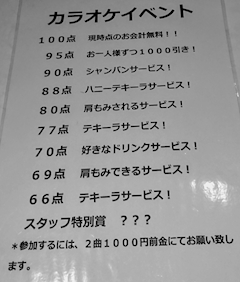 カラオケイベント
１００点 現時点のお会計無料！！
９５点 お一人様ずつ１０００引き！
９０点 シャンパンサービス！
８８点 ハニーテキーラサービス！
８０点 肩もみされるサービス！
７７点 テキーラサービス！
７０点 好きなドリンクサービス！
６９点 肩もみできるサービス！
６６点 テキーラサービス！
スタッフ特別賞 ？？？
＊参加するには、２曲１０００円前金にてお願い致し
ます。